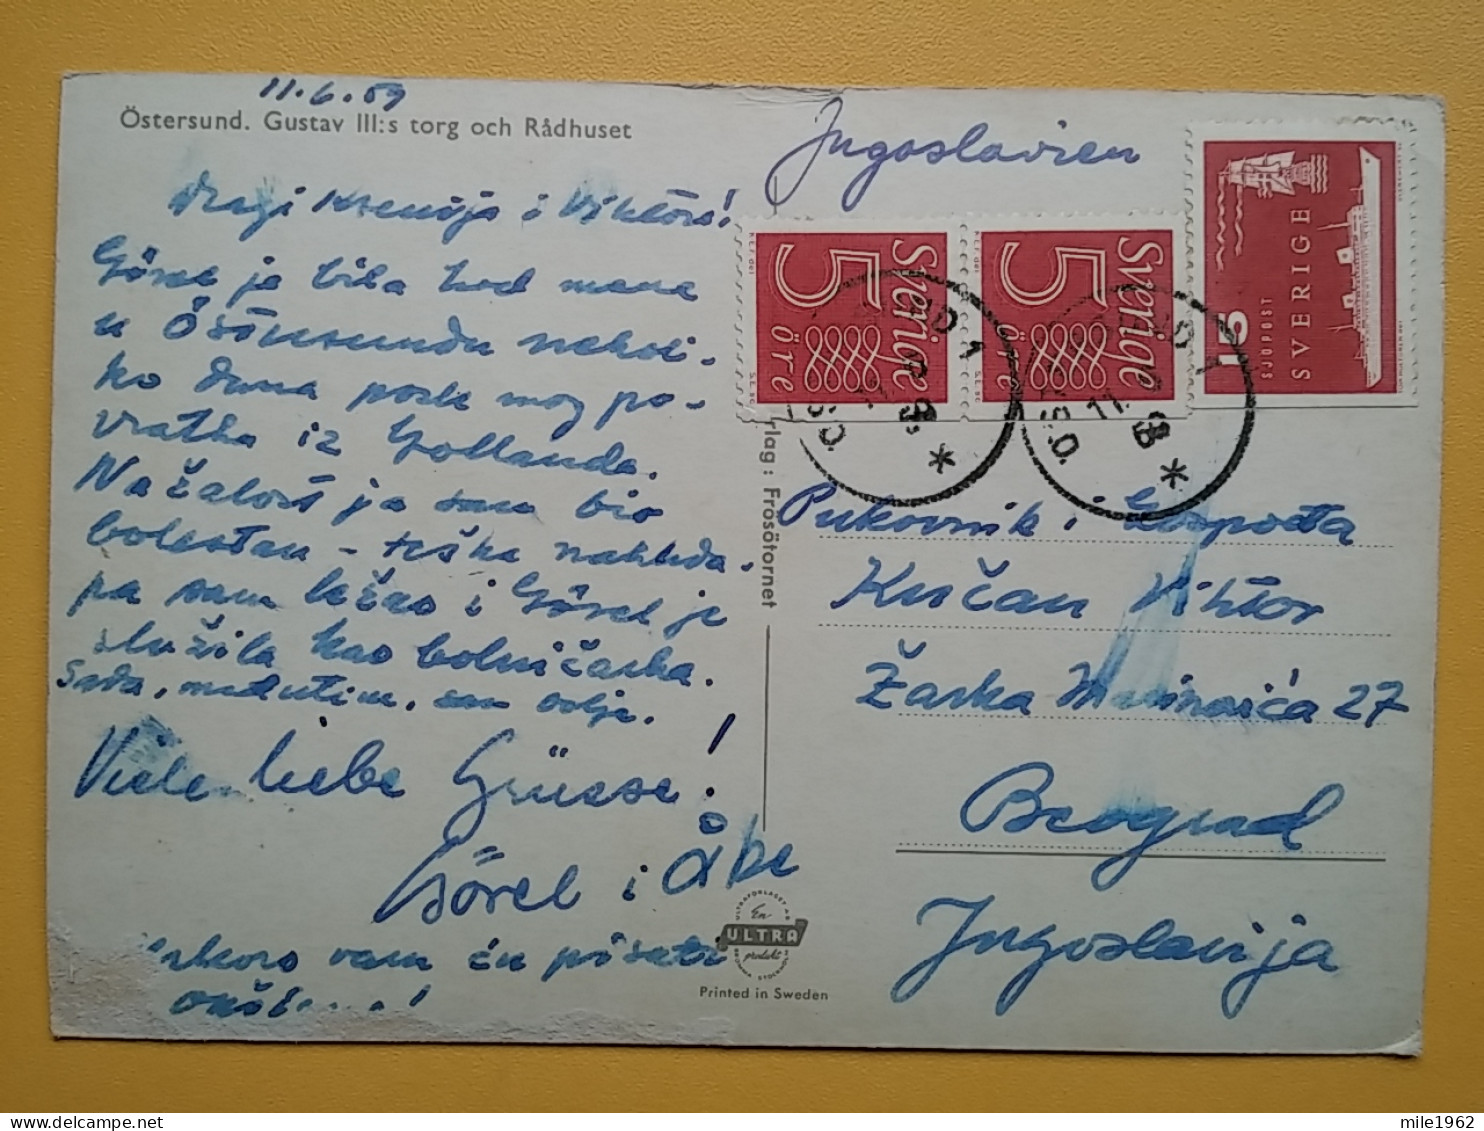 11.6.59
Östersund. Gustav III:s torg och Rådhuset
Dragi Ksenija i Viktor!
Görel je bila kod mene
u Östersundu nekoli-
ko dana posle mog po-
vratka iz Hollanda.
Na žalost ja sam bio
bolestan - teška nahlada,
pa sam ležao i Görel je
služila kao bolničarka.
Sada, međutim, sam bolje.
Viele liebe Grüsse!
Görel i Åke
Uskoro vam ću pisati
Jugoslavien
Sverige
5
öre
Sverige
5
öre
15
SJÖPOST
SVERIGE
rlag: Frösötornet
Pukovnik i Gospođa
Kučan Viktor
Žarka 27
Beograd
Jugoslavija
En
ULTRA
produkt
Printed in Sweden
mile1962